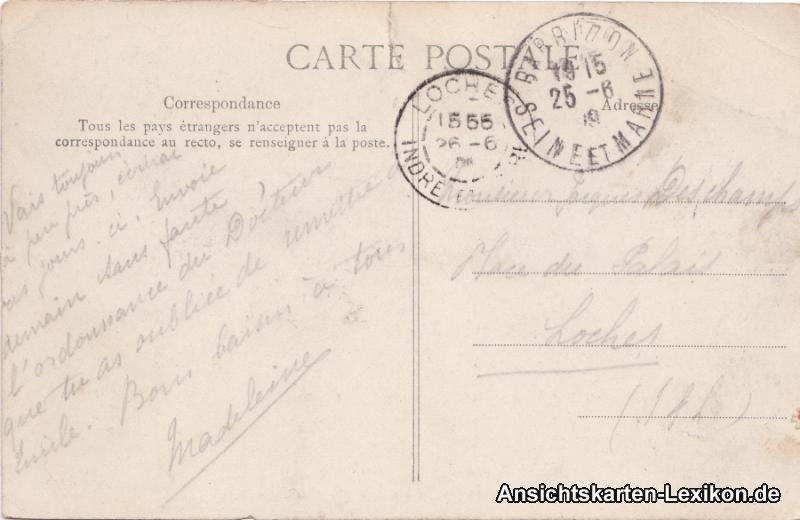 CARTE POSTALE
Correspondance
Tous les pays étrangers n'acceptent pas la
correspondance au recto, se renseigner à la poste.
Adresse
BARBIZON
19 15
25 - 6
SEINE ET MARNE
LOCHES
15 55
26 - 6
INDRE ET
Vais toujours
à peu près,
jours-ci. Envoie
demain sans faute
l'ordonnance du Docteur
que tu as oubliée de remettre à
Emile. Bons baisers à tous
Madeleine
Monsieur Jacques Deschamps
Place du Palais
Loches
(I & L)
Ansichtskarten-Lexikon.de